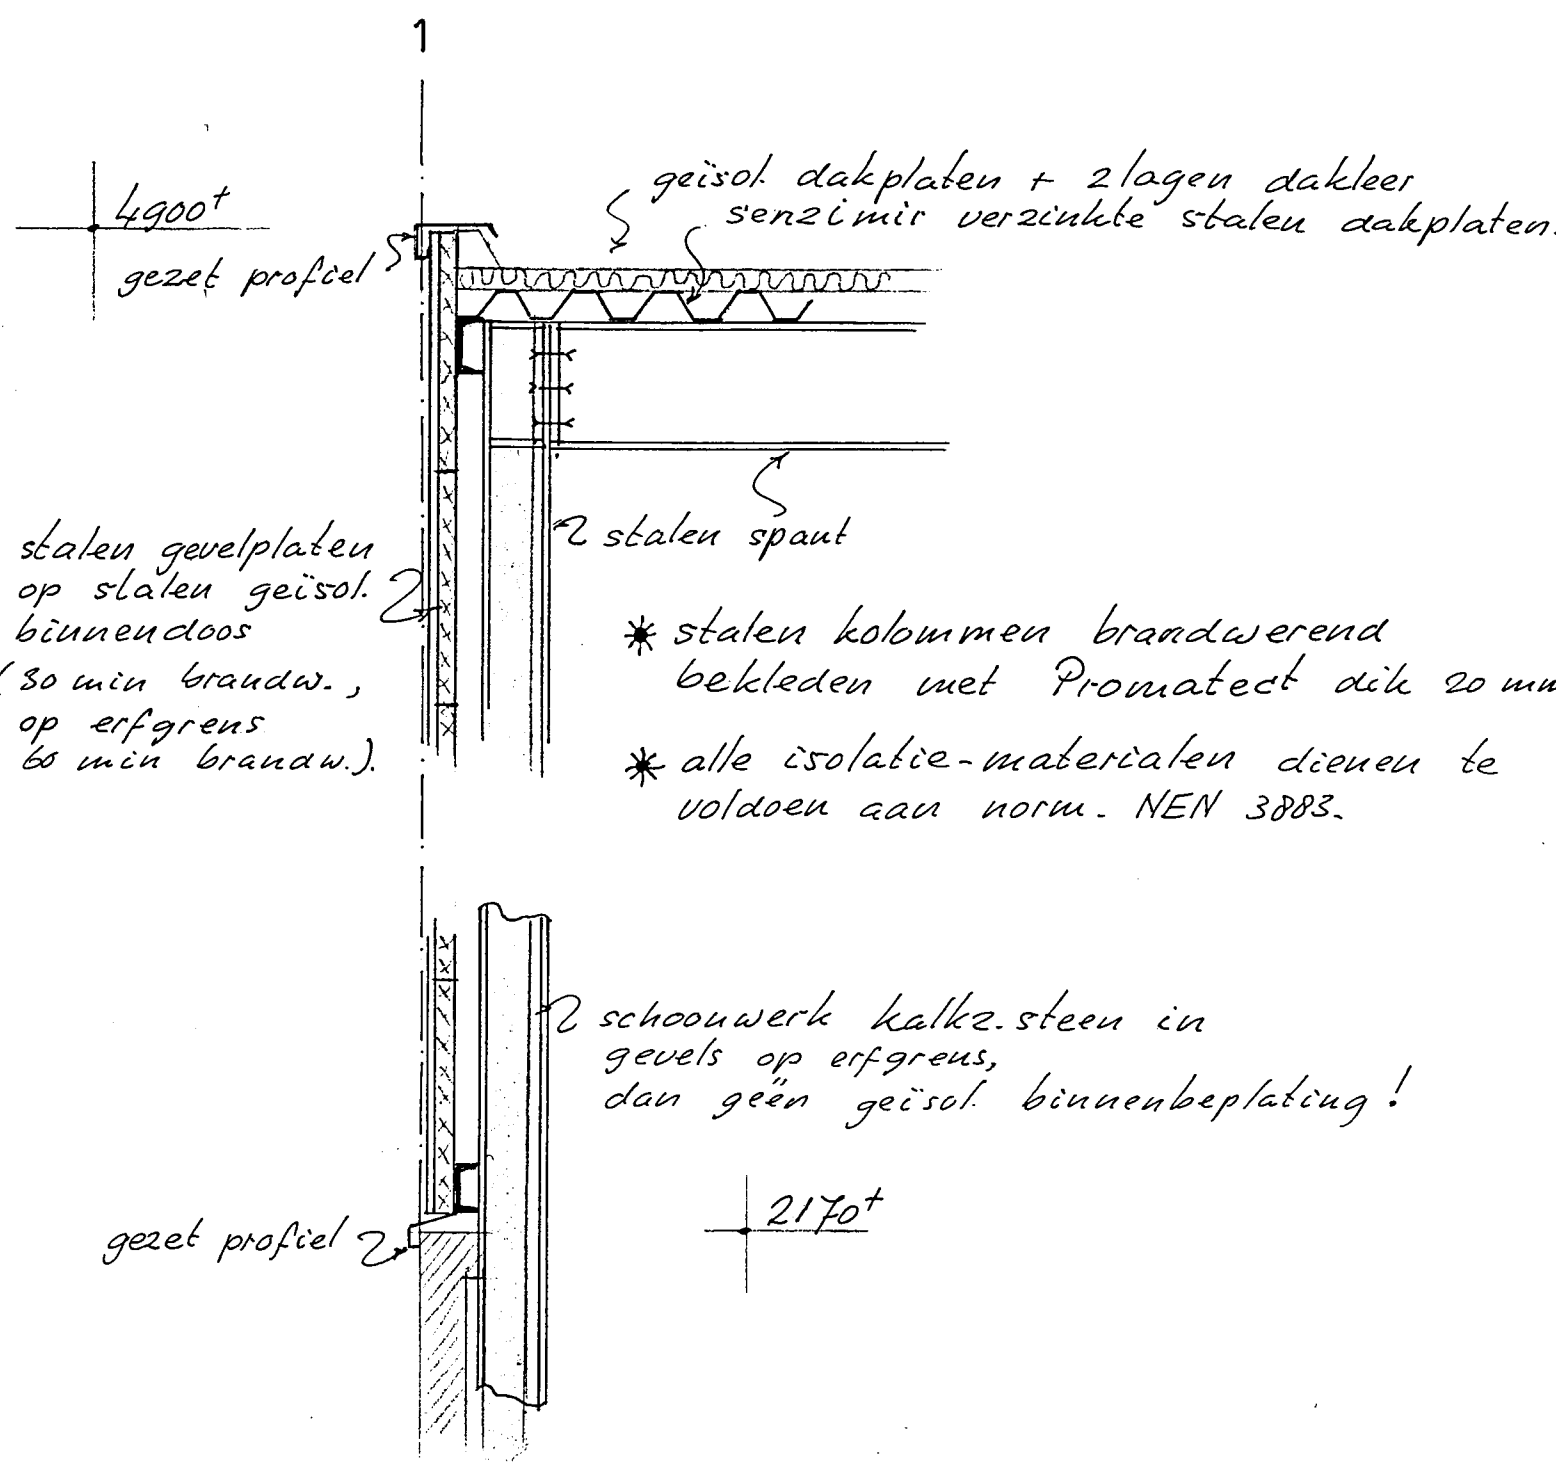 1
4900+
geïsol. dakplaten + 2 lagen dakleer
senzimir verzinkte stalen dakplaten.
gezet profiel
stalen spant
stalen gevelplaten
op stalen geïsol.
binnendoos
(30 min brandw.,
op erfgrens
60 min brandw.).
✳ stalen kolommen brandwerend
bekleden met Promatect dik 20 mm
✳ alle isolatie-materialen dienen te
voldoen aan norm. NEN 3883.
schoonwerk kalkz.steen in
gevels op erfgrens,
dan géén geïsol. binnenbeplating!
2170+
gezet profiel